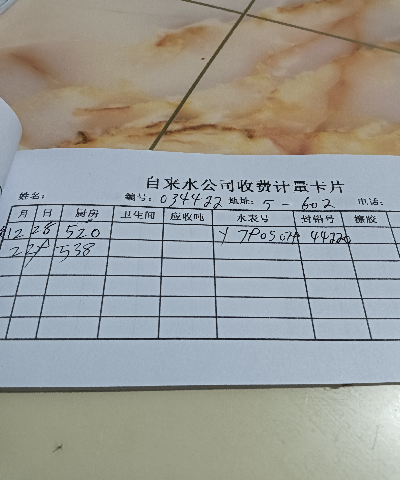 自来水公司收费计量卡片
姓名： 编号：034422 地址：5-602 电话：
月 日 厨房 卫生间 应收吨 水表号 封铅号 橡胶
12 28 520
538